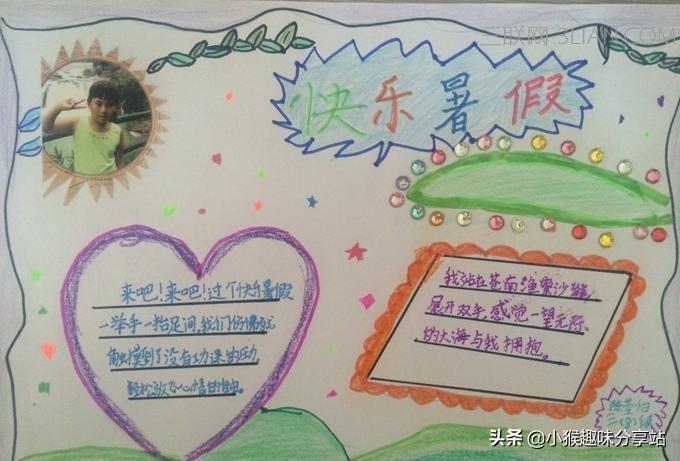 三联网 3LIAN.COM
快乐暑假
来吧！来吧！过个快乐暑假
一举手一抬足间,我们仿佛就
触摸到了没有功课的压力,
轻松放飞心情的自由。
我站在苍南渔寮沙滩
展开双手,感觉一望无际
的大海与我拥抱。
三(8)班
头条 @小猴趣味分享站